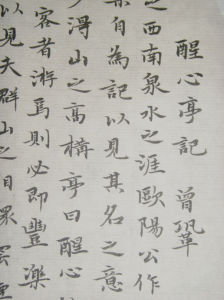 醒心亭記 曾鞏
之西南泉水之涯歐陽公作
自為記以見其名之意
得山之高構亭曰醒心
客者游焉則必即豐樂
以見夫群山之